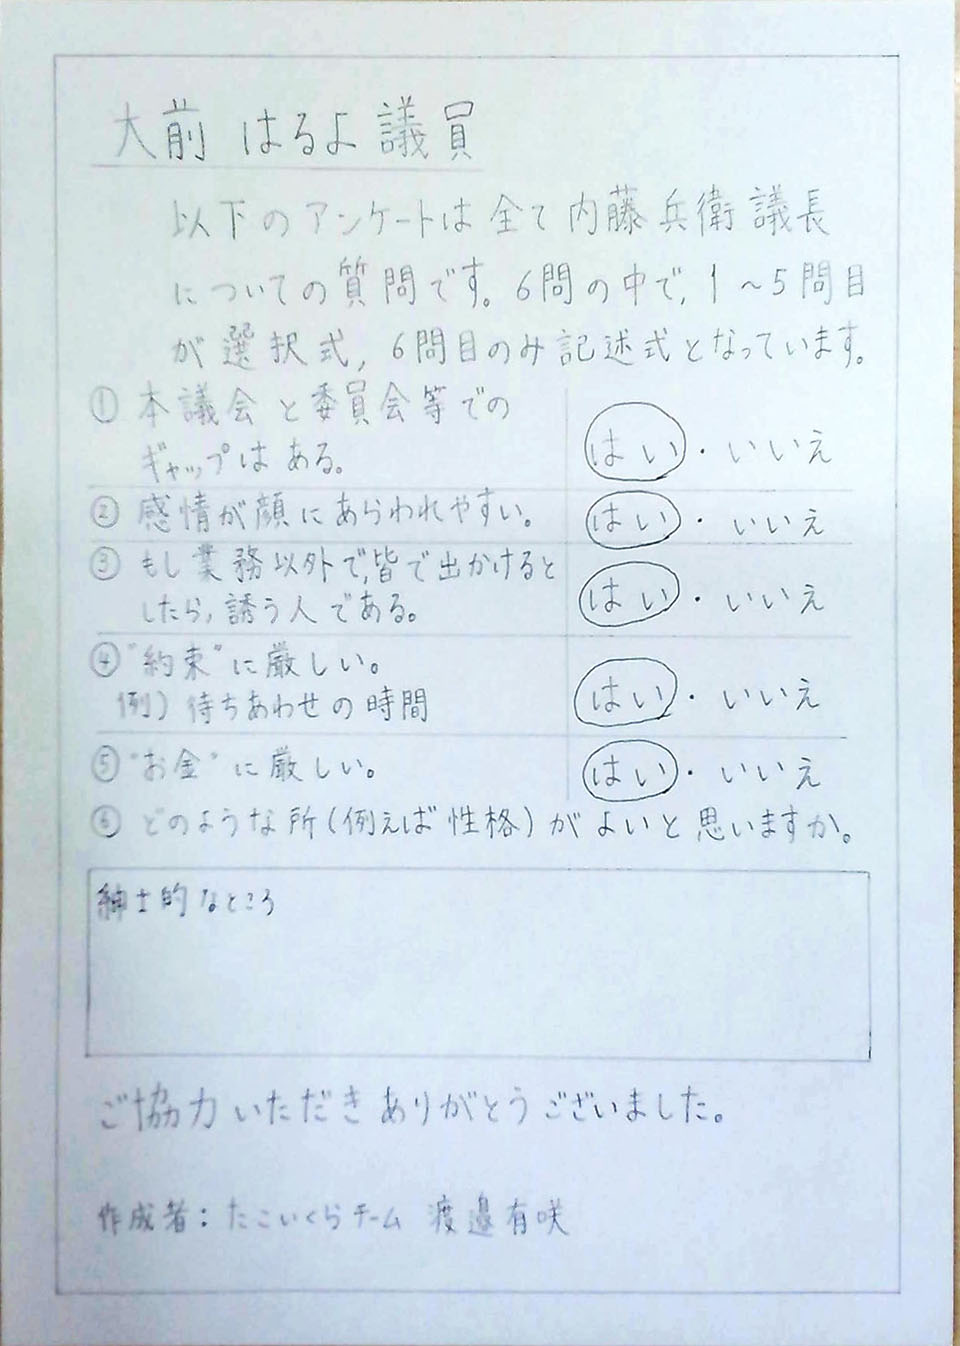 大前 はるよ議員
以下のアンケートは全て内藤兵衛議長
についての質問です。6問の中で、1～5問目
が選択式、6問目のみ記述式となっています。
① 本議会と委員会等での
ギャップはある。 はい・いいえ
② 感情が顔にあらわれやすい。 はい・いいえ
③ もし業務以外で、皆で出かけると
したら、誘う人である。 はい・いいえ
④ "約束"に厳しい。
例）待ちあわせの時間 はい・いいえ
⑤ "お金"に厳しい。 はい・いいえ
⑥ どのような所（例えば性格）がよいと思いますか。
紳士的なところ
ご協力いただきありがとうございました。
作成者：たこいくらチーム 渡邉有咲